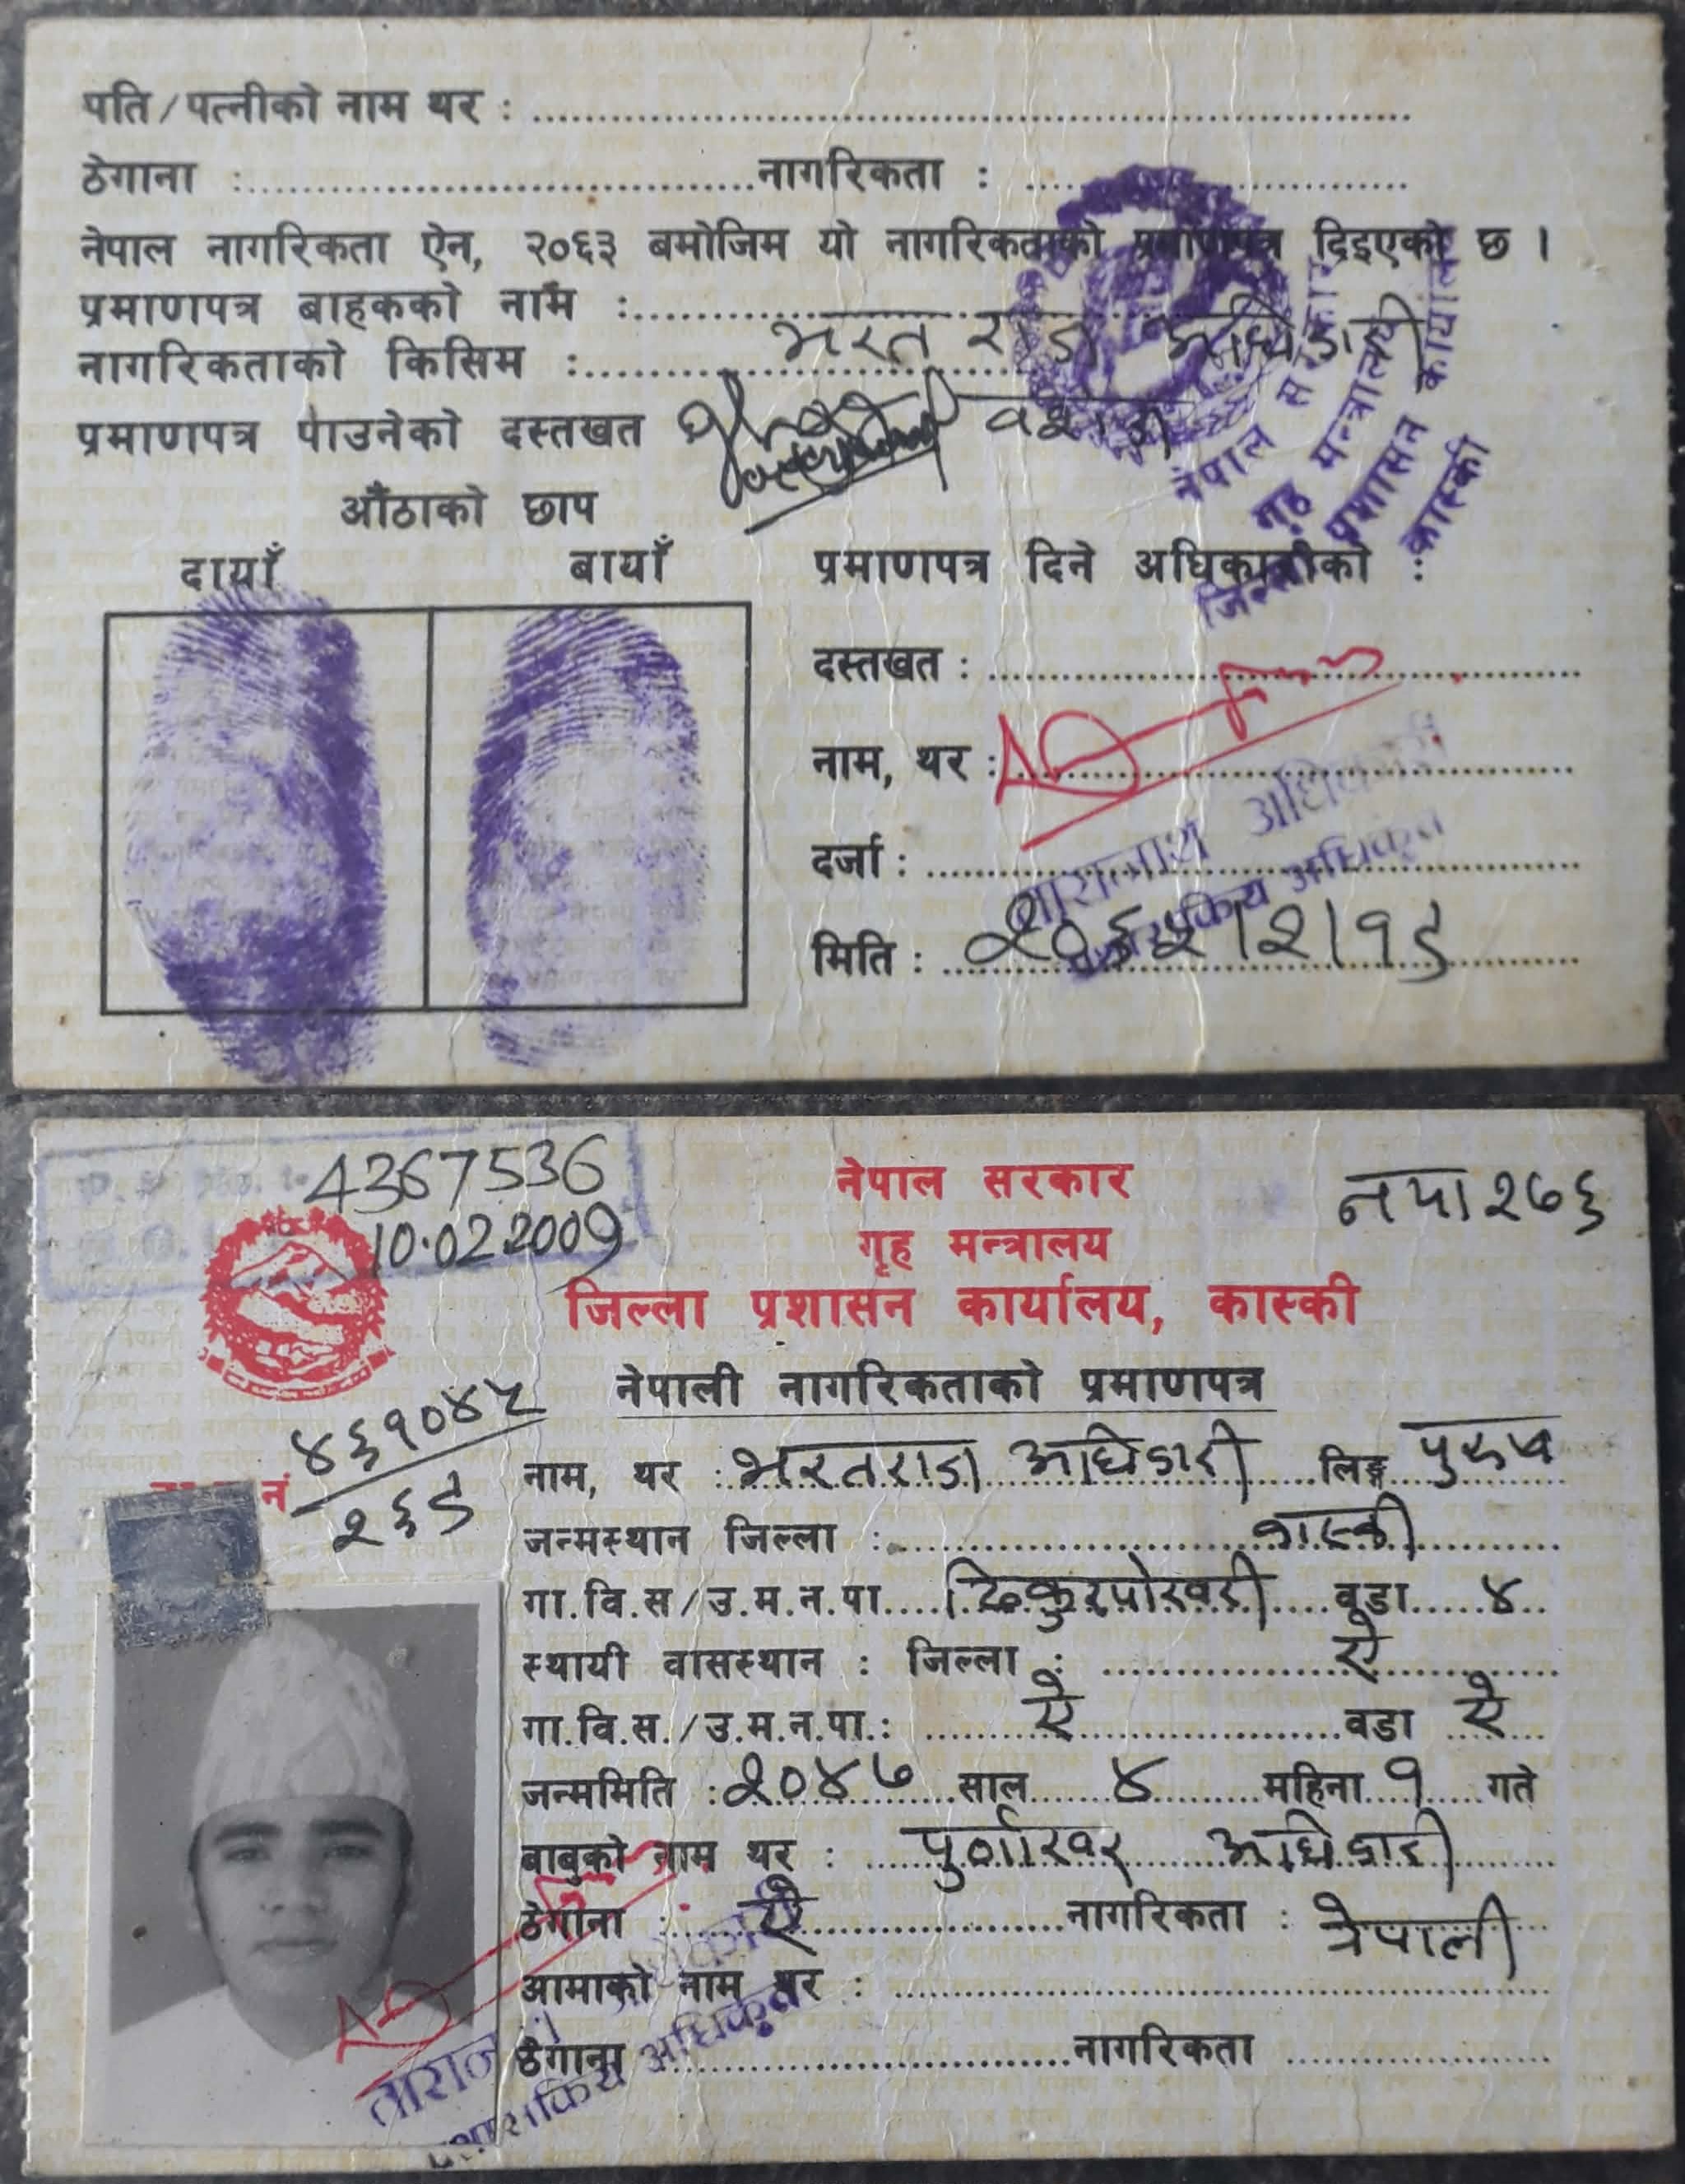 पति/पत्नीको नाम थर :
ठेगाना : नागरिकता :
नेपाल नागरिकता ऐन, २०६३ बमोजिम यो नागरिकताको प्रमाणपत्र दिइएको छ ।
प्रमाणपत्र बाहकको नाम : भरत राज अधिकारी
नागरिकताको किसिम : वंशज
प्रमाणपत्र पाउनेको दस्तखत
औंठाको छाप
दायाँ बायाँ
नेपाल सरकार
गृह मन्त्रालय
जिल्ला प्रशासन कार्यालय
कास्की
प्रमाणपत्र दिने अधिकारीको :
दस्तखत :
नाम, थर :
अधिकारी
दर्जा :
अधिकृत
मिति : २०६५।२।१९
4367536
10.02.2009
नेपाल सरकार
गृह मन्त्रालय
जिल्ला प्रशासन कार्यालय, कास्की
नेपाली नागरिकताको प्रमाणपत्र
नं
४६१०४५
२६९
नाम, थर : भरतराज अधिकारी लिङ्ग पुरुष
जन्मस्थान जिल्ला : कास्की
गा.वि.स/उ.म.न.पा. ढिकुरपोखरी वडा ४
स्थायी वासस्थान : जिल्ला : ऐ
गा.वि.स./उ.म.न.पा.: ऐ वडा ऐ
जन्ममिति : २०४७ साल ४ महिना १ गते
बाबुको नाम थर : अधिकारी
ठेगाना : ऐ नागरिकता : नेपाली
आमाको नाम थर :
ठेगाना नागरिकता
अधिकृत